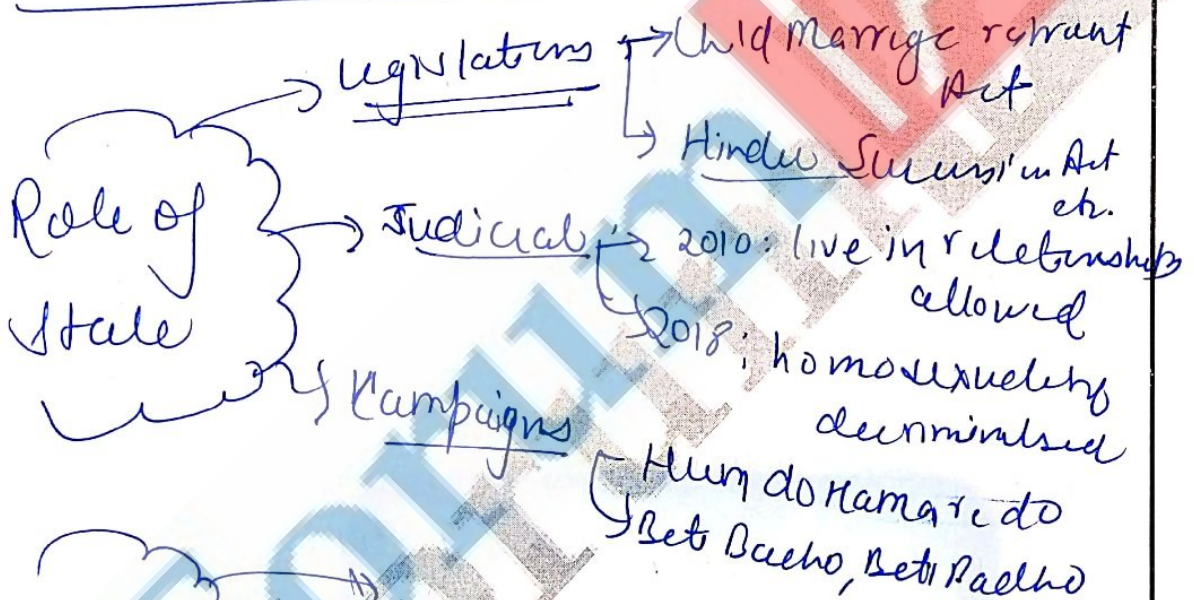 Legislations → Child Marriage restraint
Act
→ Hindu Succession Act
etc.
Role of
State
Judicial → 2010: live in relationships
allowed
→ 2018; homosexuality
decriminalised
Campaigns
Hum do Hamare do
Beti Bacho, Beti Padho